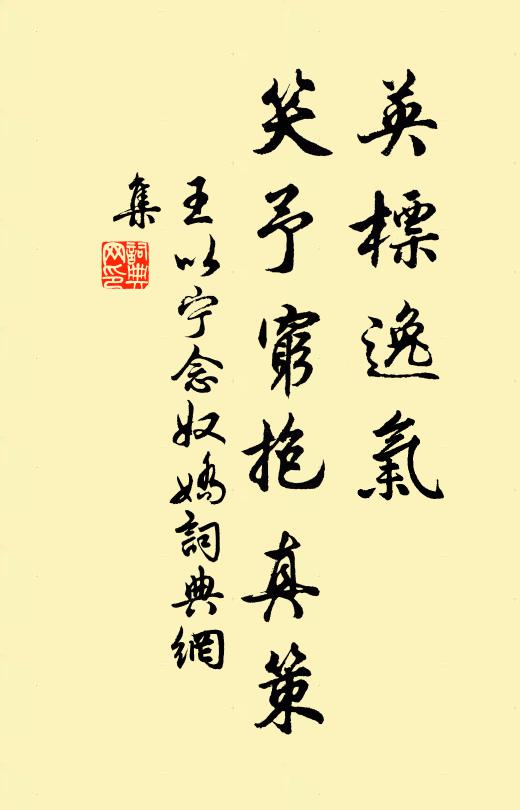 英標逸氣
笑予窮抱真策
王以宁念奴嬌詞典網
集
詞典網印